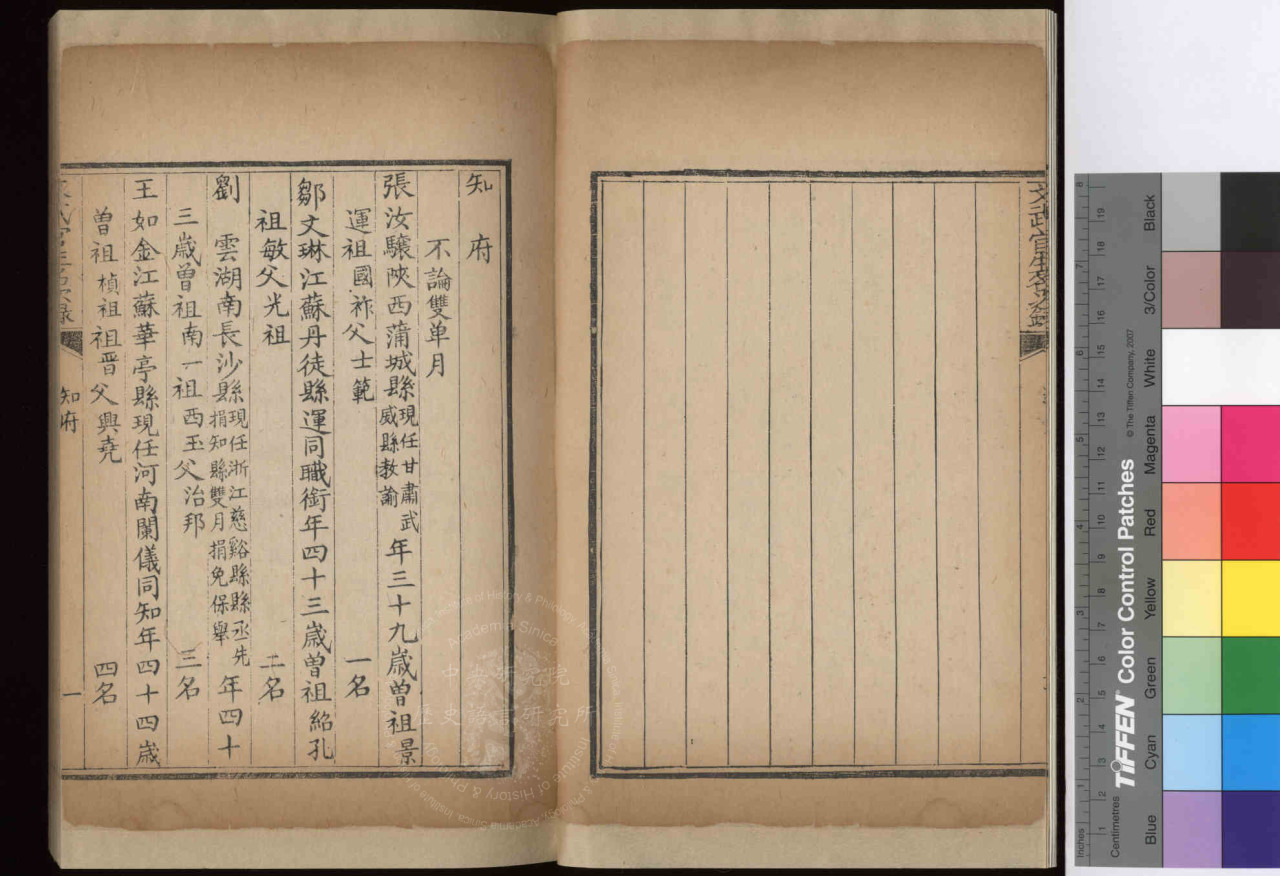 文武官生名次錄
知府
不論雙单月
張汝驤陝西蒲城縣現任甘肅武威縣教諭年三十九歲曾祖景
運祖國祚父士範 一名
鄒文琳江蘇丹徒縣運同職銜年四十三歲曾祖紹孔
祖敏父光祖 二名
劉 雲湖南長沙縣現任浙江慈谿縣縣丞先捐知縣雙月捐免保舉年四十
三歲曾祖南一祖西玉父治邦 三名
王如金江蘇華亭縣現任河南蘭儀同知年四十四歲
曾祖楨祖祖晋父興堯 四名
文武官生名次錄 知府 一
中央研究院
歷史語言研究所
Academia Sinica
Institute of History & Philology
Inches
Centimetres
1 2 3 4 5 6 7 8
1 2 3 4 5 6 7 8 9 10 11 12 13 14 15 16 17 18 19
TIFFEN® Color Control Patches
© The Tiffen Company, 2007
Blue
Cyan
Green
Yellow
Red
Magenta
White
3/Color
Black